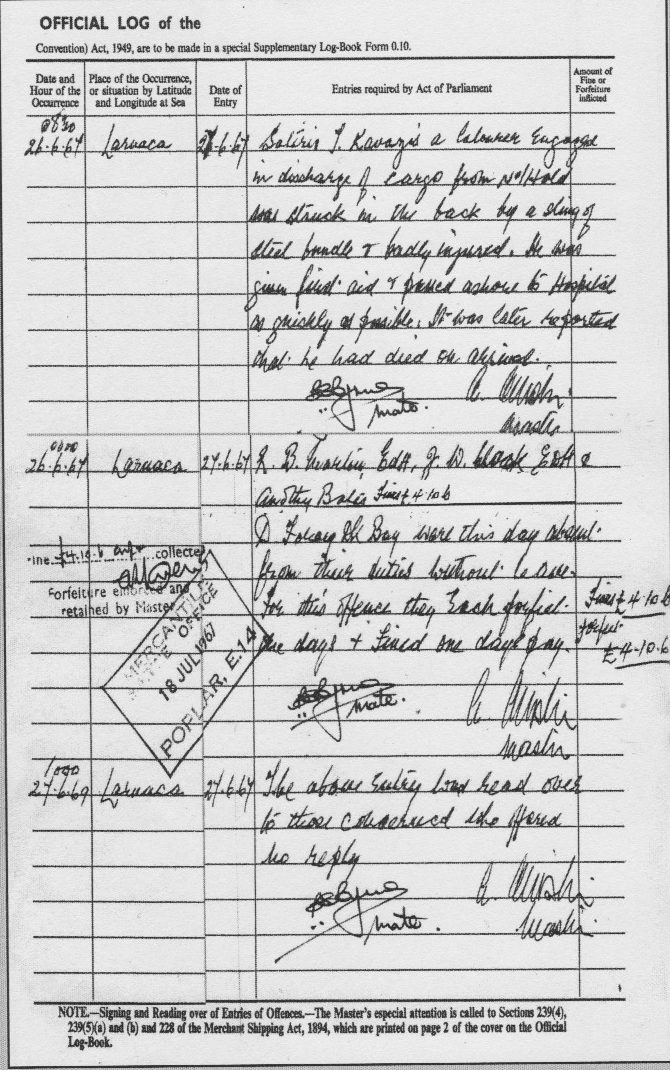 OFFICIAL LOG of the
Convention) Act, 1949, are to be made in a special Supplementary Log-Book Form 0.10.
Date and Hour of the Occurrence
Place of the Occurrence, or situation by Latitude and Longitude at Sea
Date of Entry
Entries required by Act of Parliament
Amount of Fine or Forfeiture inflicted
0830
26.6.67 Larnaca 27.6.67 Sotiris J. Kavazis a labourer engaged
in discharge of cargo from No 1 Hold
was struck in the back by a sling of
steel bundle & badly injured. He was
given first aid & passed ashore to Hospital
as quickly as possible. It was later reported
that he had died on arrival.
Mate. Master
0000
26.6.67 Larnaca 27.6.67 R. B. EDH, J. W. EDH &
Fines £4.10.6
were this day absent
from their duties without leave.
For this offence they each forfeit Fines £4.10.6
one days & fined one days pay. forfeit £4-10.6
Fine £4.10.6 collected
Forfeiture enforced and
retained by Master
MERCANTILE
MARINE OFFICE
18 JUL 1967
POPLAR, E.14
Mate. Master
1000
27.6.69 Larnaca 27.6.67 The above entry was read over
to those concerned who offered
no reply
Mate. Master
NOTE.—Signing and Reading over of Entries of Offences.—The Master's especial attention is called to Sections 239(4),
239(5)(a) and (b) and 228 of the Merchant Shipping Act, 1894, which are printed on page 2 of the cover on the Official
Log-Book.